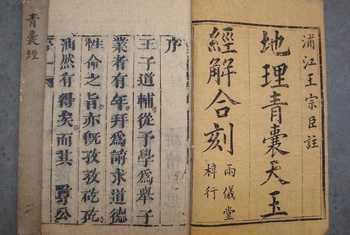 浦江王宗臣註
地理青囊天玉
經解合刻
兩儀堂
梓行
序
王子道輔從予學爲舉子
業者有年拜爲請求道德
性命之旨亦旣孜孜矻矻
涵然有得矣而其 公
青囊經